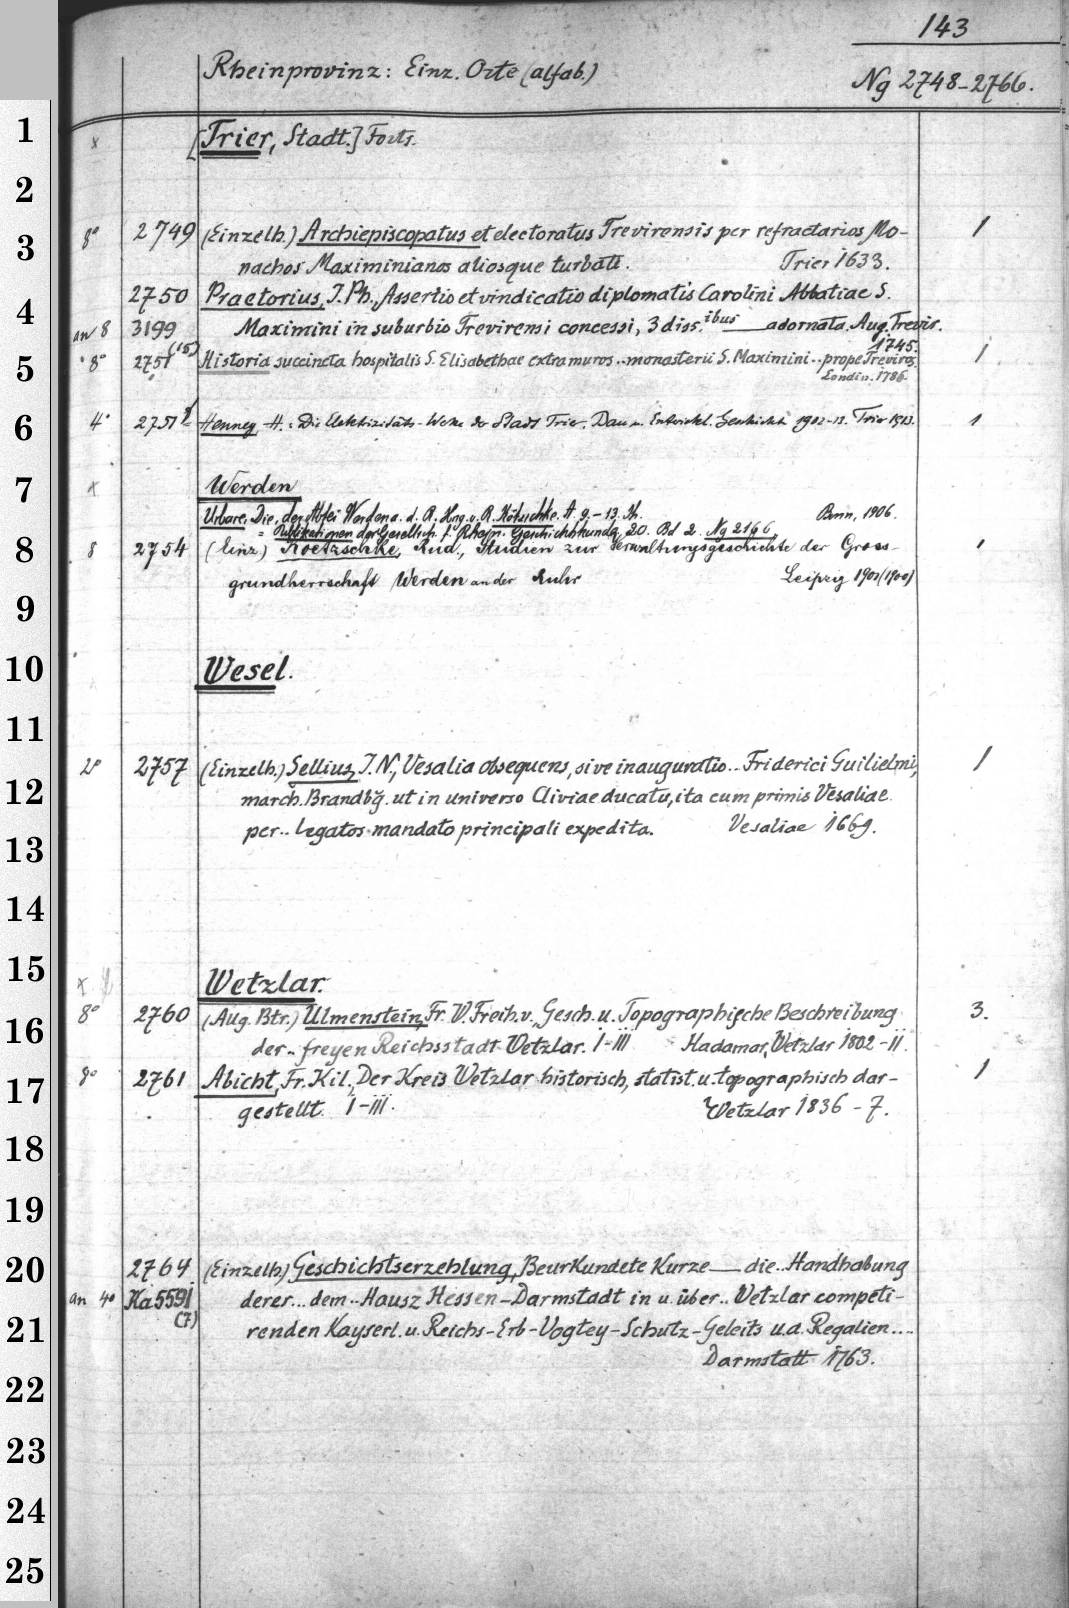 143
Rheinprovinz: Einz. Orte (alfab.)
Ng 2748-2766.
1
x [Trier, Stadt.] Forts.
2
3
8° 2749 (Einzelh.) Archiepiscopatus et electoratus Trevirensis per refractarios Mo- 1
nachos Maximinianos aliosque turbati. Trier 1633.
2750 Praetorius, J. Ph., Assertio et vindicatio diplomatis Carolini Abbatiae S.
4
an 8 3199 Maximini in suburbio Trevirensi concessi, 3 diss.ibus — adornata. Aug. Trevir.
1745.
5
8° 2751(5) Historia succincta hospitalis S. Elisabethae extra muros .. monasterii S. Maximini .. prope Treviros 1
Londin. 1786.
6
4° 2751 Henney H.: Die Elektrizitäts-Werke der Stadt Trier. Bau u. Entwickl. Geschichte 1902-13. Trier 1913. 1
7
x Werden
Urbare, Die, der Abtei Werden a. d. R. Hrg. v. R. Kötzschke. A 9.-13. Jh. Bonn, 1906.
= Publikationen der Gesellsch. f. Rhein. Geschichtskunde, 20. Bd 2. Ng 2166
8
8 2754 (Einz) Koetzschke, Rud., Studien zur Verwaltungsgeschichte der Gross- 1
grundherrschaft Werden an der Ruhr Leipzig 1901 (1900)
9
10
Wesel.
11
2° 2757 (Einzelh.) Sellius, J. N., Vesalia obsequens, sive inauguratio .. Friderici Guilielmi, 1
12
march. Brandbg̃. ut in universo Cliviae ducatu, ita cum primis Vesaliae
per .. legatos mandato principali expedita. Vesaliae 1669.
13
14
15
x Wetzlar.
8° 2760 (Aug. Btr.) Ulmenstein, Fr. W. Freih. v., Gesch. u. Topographische Beschreibung 3.
16
der .. freyen Reichsstadt Wetzlar. I-III Hadamar, Wetzlar 1802-11.
17
8° 2761 Abicht, Fr. Kil., Der Kreis Wetzlar historisch, statist. u. topographisch dar- 1
gestellt. I-III. Wetzlar 1836-7.
18
19
20
2764 (Einzelh.) Geschichtserzehlung, Beurkundete Kurze — die .. Handhabung
an 4° Ka 5591 derer ... dem .. Hausz Hessen-Darmstadt in u. über .. Wetzlar competi-
(7)
21
renden Kayserl. u. Reichs-Erb-Vogtey-Schutz-Geleits u. a. Regalien ....
Darmstatt 1763.
22
23
24
25